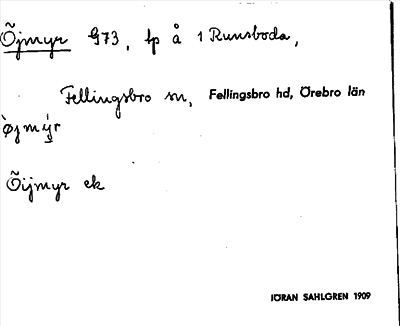 Õjmyr G73, tp å 1 Runsboda,
Fellingsbro sn, Fellingsbro hd, Örebro län
ø̀jmýr
Õijmyr ek
JÖRAN SAHLGREN 1909